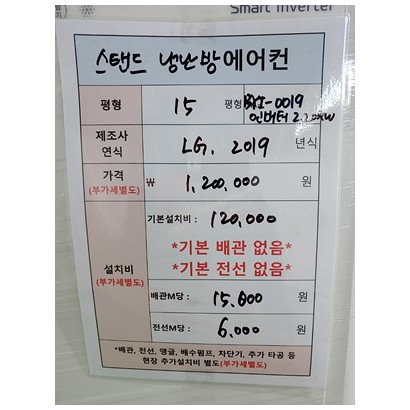 Smart Inverter
스탠드 냉난방에어컨
평형 15 평형 BRI-0019
인버터 2.20kW
제조사
연식 LG. 2019 년식
가격
(부가세별도) ₩ 1,200,000 원
기본설치비 : 120,000
*기본 배관 없음*
설치비
(부가세별도)
*기본 전선 없음*
배관M당 : 15,600 원
전선M당 : 6,000 원
*배관, 전선, 앵글, 배수펌프, 차단기, 추가 타공 등
현장 추가설치비 별도(부가세별도)